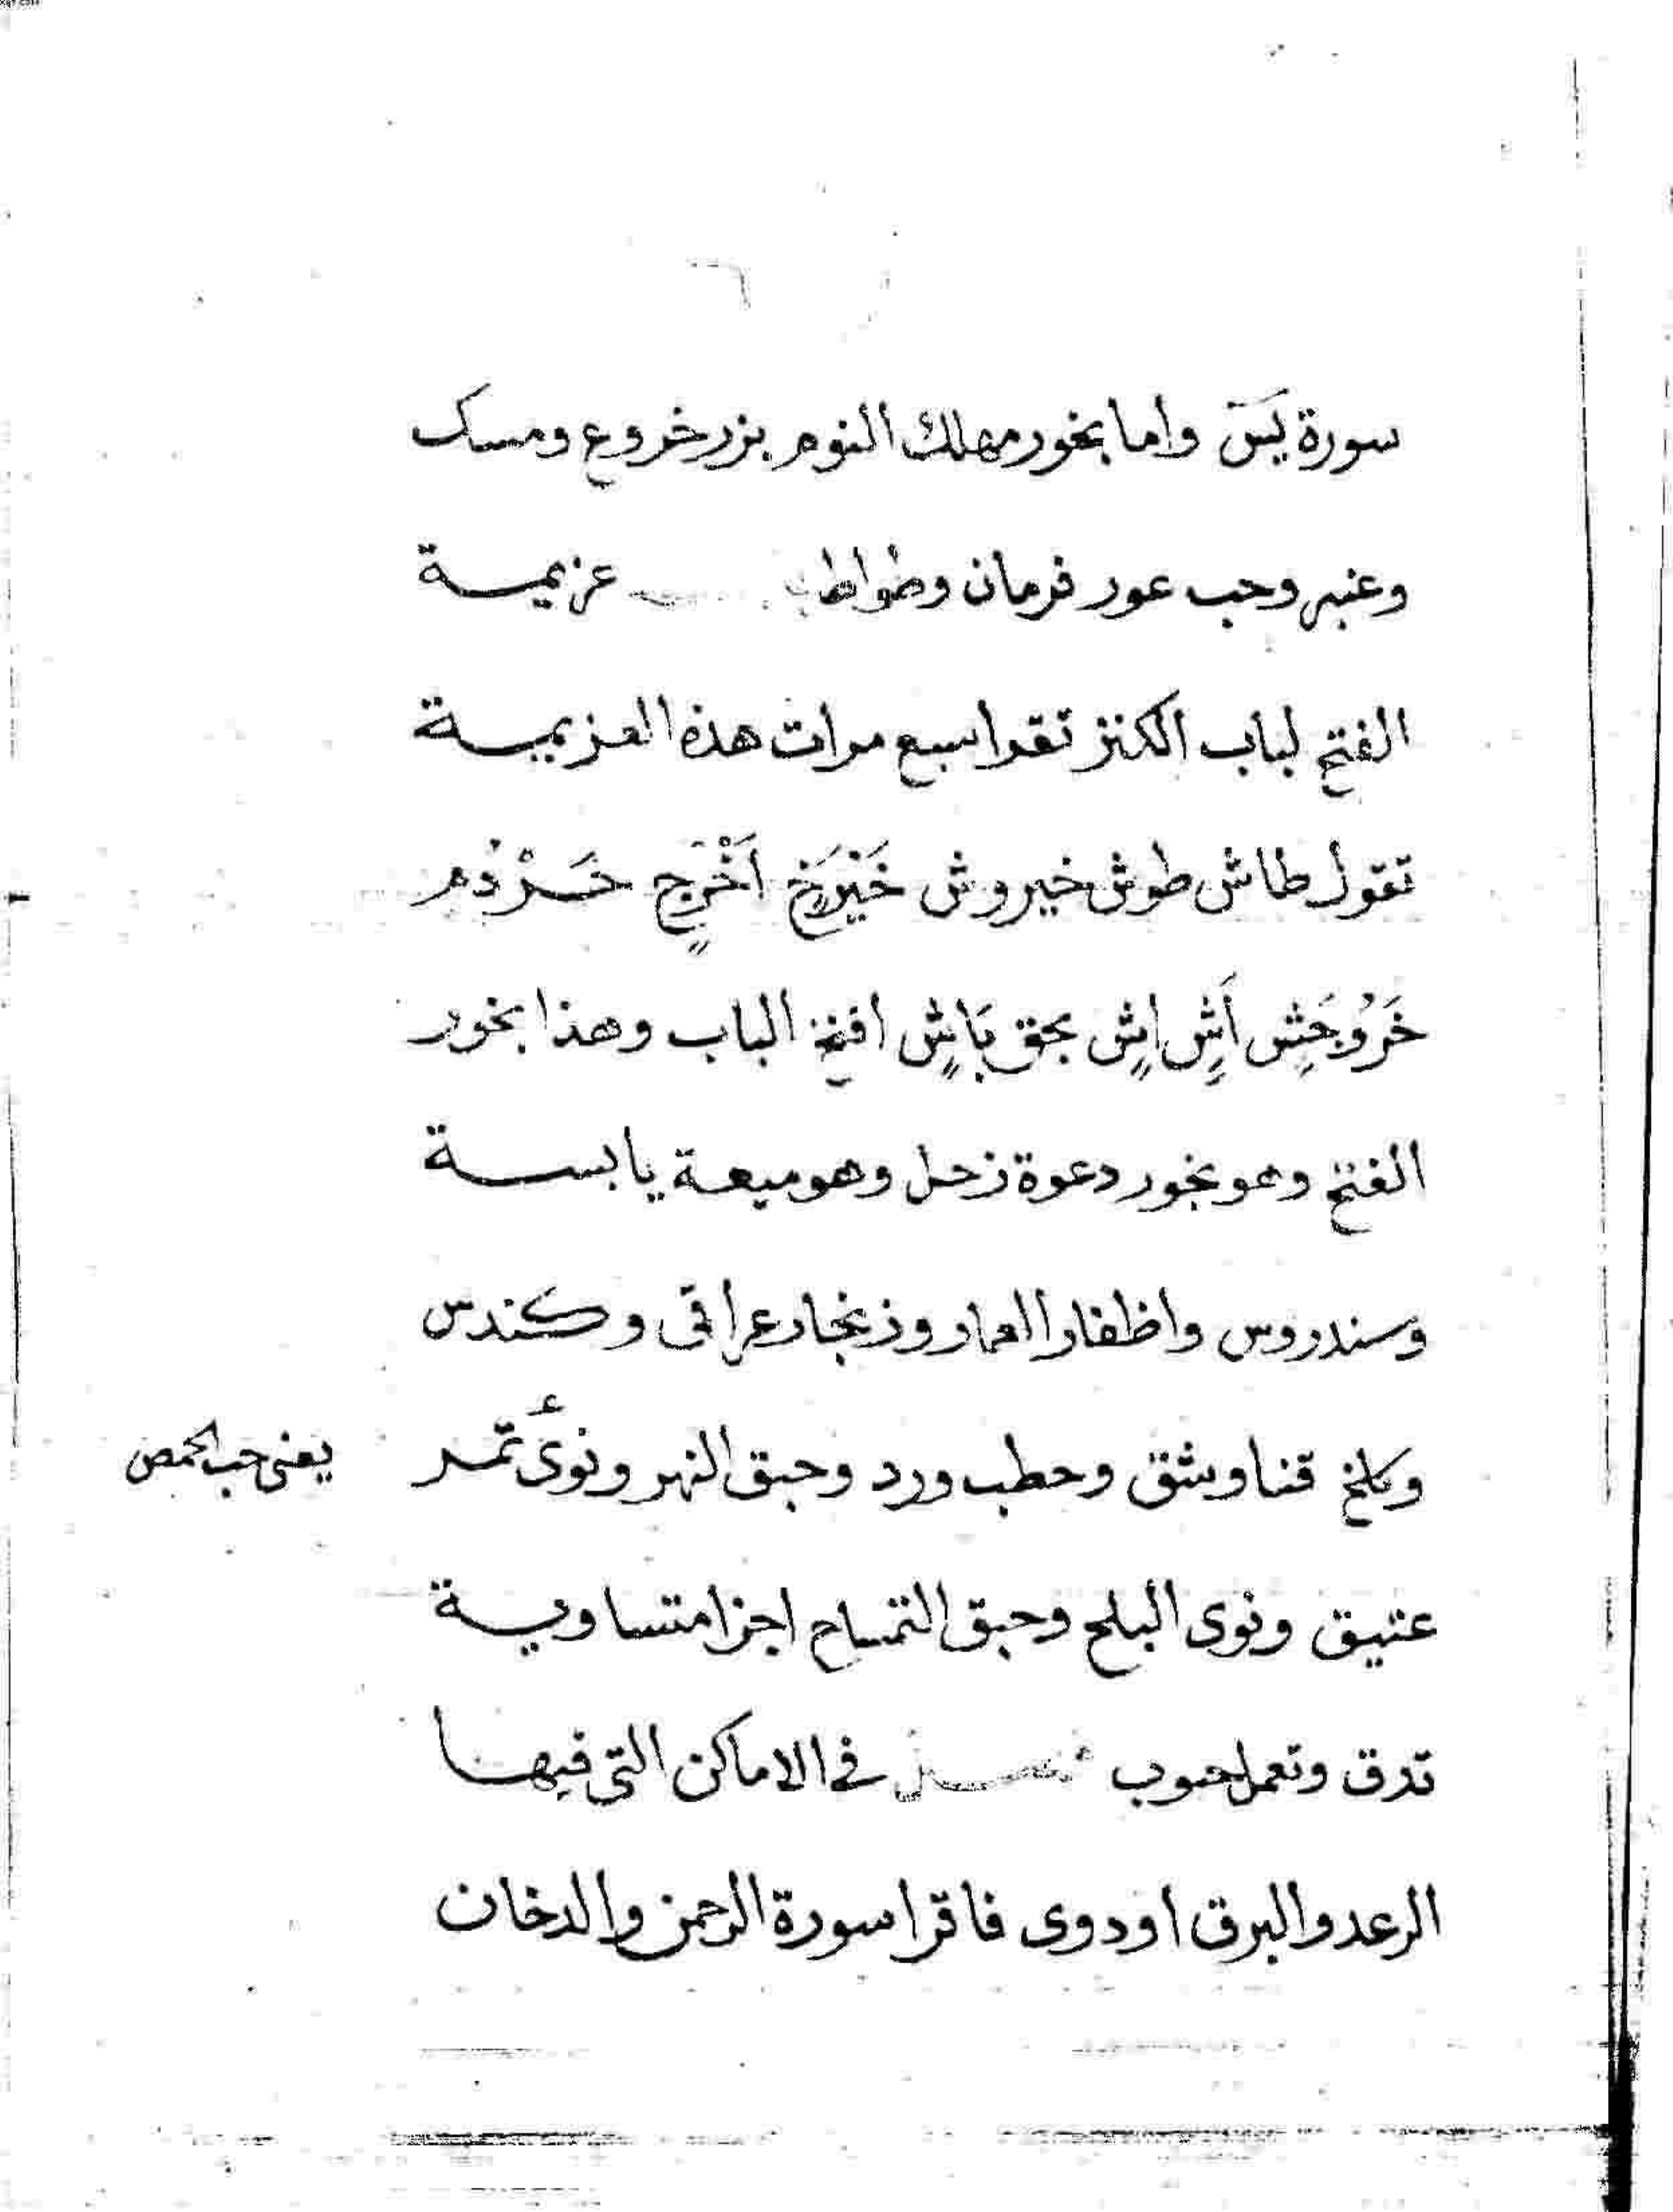 سورة يَس واما بخور مهلك النوم بزر خروع ومسك
وعنبر وحب عور فرمان وطواط عزيمة
الفتح لباب الكنز تقرا سبع مرات هذه العزيمة
تقول طاش طوش خيروش خَيْرَخٍ اَخْرَجٍ خَرْدُم
خَرُوجَشٍ اَشٍ اشٍ بحق بَاشٍ افتح الباب وهذا بخور
الفتح وهو بخور دعوة زحل وهو ميعة يابسة
وسندروس واظفار العمار وزنجار عراقى وكندس
وكلخ قنا وشق وحطب ورد وحبق النهر ونوىء تمر يعنى حب الحمص
عتيق ونوى البلح وحبق التمساح اجزا متساوية
تدق وتعمل حبوب فى الاماكن التى فيها
الرعد والبرق او دوى فاقرا سورة الرحمن والدخان